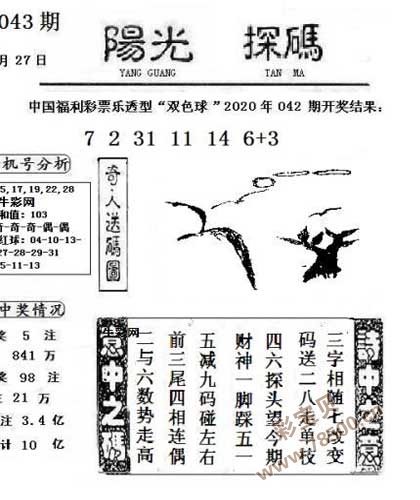 043期
月27日
陽光 探碼
YANG GUANG TAN MA
中国福利彩票乐透型“双色球”2020年042期开奖结果:
7 2 31 11 14 6+3
机号分析
5,17,19,22,28
牛彩网
和值: 103
奇-奇-偶-偶
红球: 04-10-13-
27-28-29-31
5-11-13
奇人送碼圖
中奖情况
奖 5 注
841万
奖 98 注
注 21 万
注 3.4 亿
计 10 亿
詩中之意
三字相随七改变
码送二八走单枝
四六探头望今期
财神一脚踩五一
五减九码碰左右
前三尾四相连偶
二与六数势走高
意中之碼
牛彩网
彩宝贝
www.78500.cn